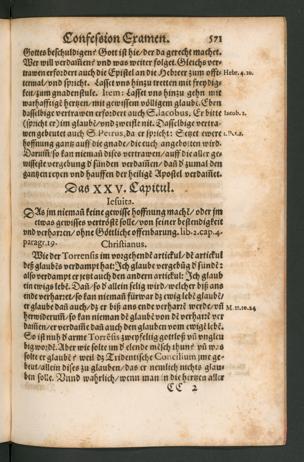 Confession Examen. 571
Gottes beschuldigen? Gott ist hie/ der da gerecht machet.
Wer will verdam̃en? vnd was weiter folget. Gleichs ver-
trawen erfordert auch die Epistel an die Hebreer zum offt- Hebr. 4. 10.
termal/ vnd spricht. Lasset vns hinzu tretten mit freydig-
keit zum gnadenstule. Item: Lasset vns hinzu gehn mit
warhafftigē hertzen/ mit gewissem völligem glaubē. Eben
dasselbige vertrawen erfordert auch S. Iacobus, Er bitte Iacob. 1.
(spricht er) im glaubē/ vnd zweifle nit. Dasselbige vertra-
wen gebeutet auch S. Petrus, da er spricht: Setzet ewere 1. P. 1.
hoffnung gantz auff die gnade/ die euch angebotten wird.
Darum̃ so kan nieman dises vertrawen/ auff die aller ge-
wisseste vergebung d̕ sünden verdam̃en/ dañ d̕ zumal den
gantzen reyen vnd hauffen der heiligē Apostel verdam̃et.
Das XXV. Capitul.
Iesuita.
DAs jm niemañ keine gewisse hoffnung machē/ oder jm
etwas gewisses vertröstē solle/ von seiner bestendigkeit
vnd verharren/ ohne Göttliche offenbarung. lib. 2. cap. 4.
paragr. 19.
Christianus.
Wie der Torrensis im vorgehendē artickul/ dē artickul
deß glaubēs verdampt hat: Ich glaube vergebūg d̕ sündē:
also verdampt er jetzt auch den andern artickul: Ich glaub
ein ewigs lebē. Dañ/ so d̕ allein selig wird/ welcher biß ans
ende verharret/ so kan niemañ fürwar dz ewig lebē glaubē/
er glaube dañ auch/ dz er biß ans ende verharrē werde/ vñ M. 10. 24
herwiderum̃/ so kan niemañ dē glaubē von dē verharrē ver
dam̃en/ er verdam̃e dañ auch den glauben vom ewigē lebē.
So ist nuh d̕ arme Torrēsis zweyfeltig gottloß vñ vnglеu
big wordē. Aber wie solte im d̕ elende mēsch thun? vñ was
solte er glaubē? weil dz Tridentische Concilium jme ge-
beut/ allein dises zu glauben/ das er nemlich nichts glau-
ben solle. Vnnd wahrlich/ wenn man in die hertzen aller
CC 2